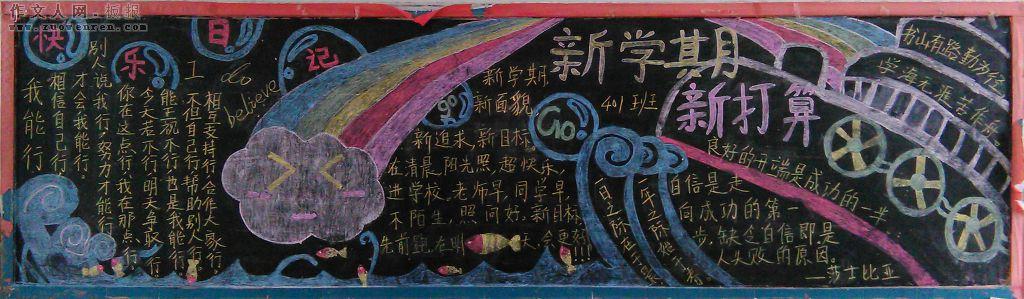 作文人网·板报
www.zuowenren.net
快乐日记
我能行
相信自己行
才会我能行
别人说我行
努力才能行
你在这点行
我在那点行
今天若不行
明天争取行
能正视不行
也是我能行
不但自己行
帮助别人行
相互支持行
合作大家行
I do believe
新学期
新面貌
go!
Go!
新学期
401班
新打算
书山有路勤为径
学海无涯苦作舟
新追求,新目标
在清晨,阳光照,起快乐,
进学校,老师早,同学早,
不陌生,照问好。新目标
先前跑在明天,会更好!!!
一日之际在于晨
一年之际在于春
良好的开端是成功的一半
自信是走
向成功的第一
步,缺乏自信即是
人失败的原因。
——莎士比亚